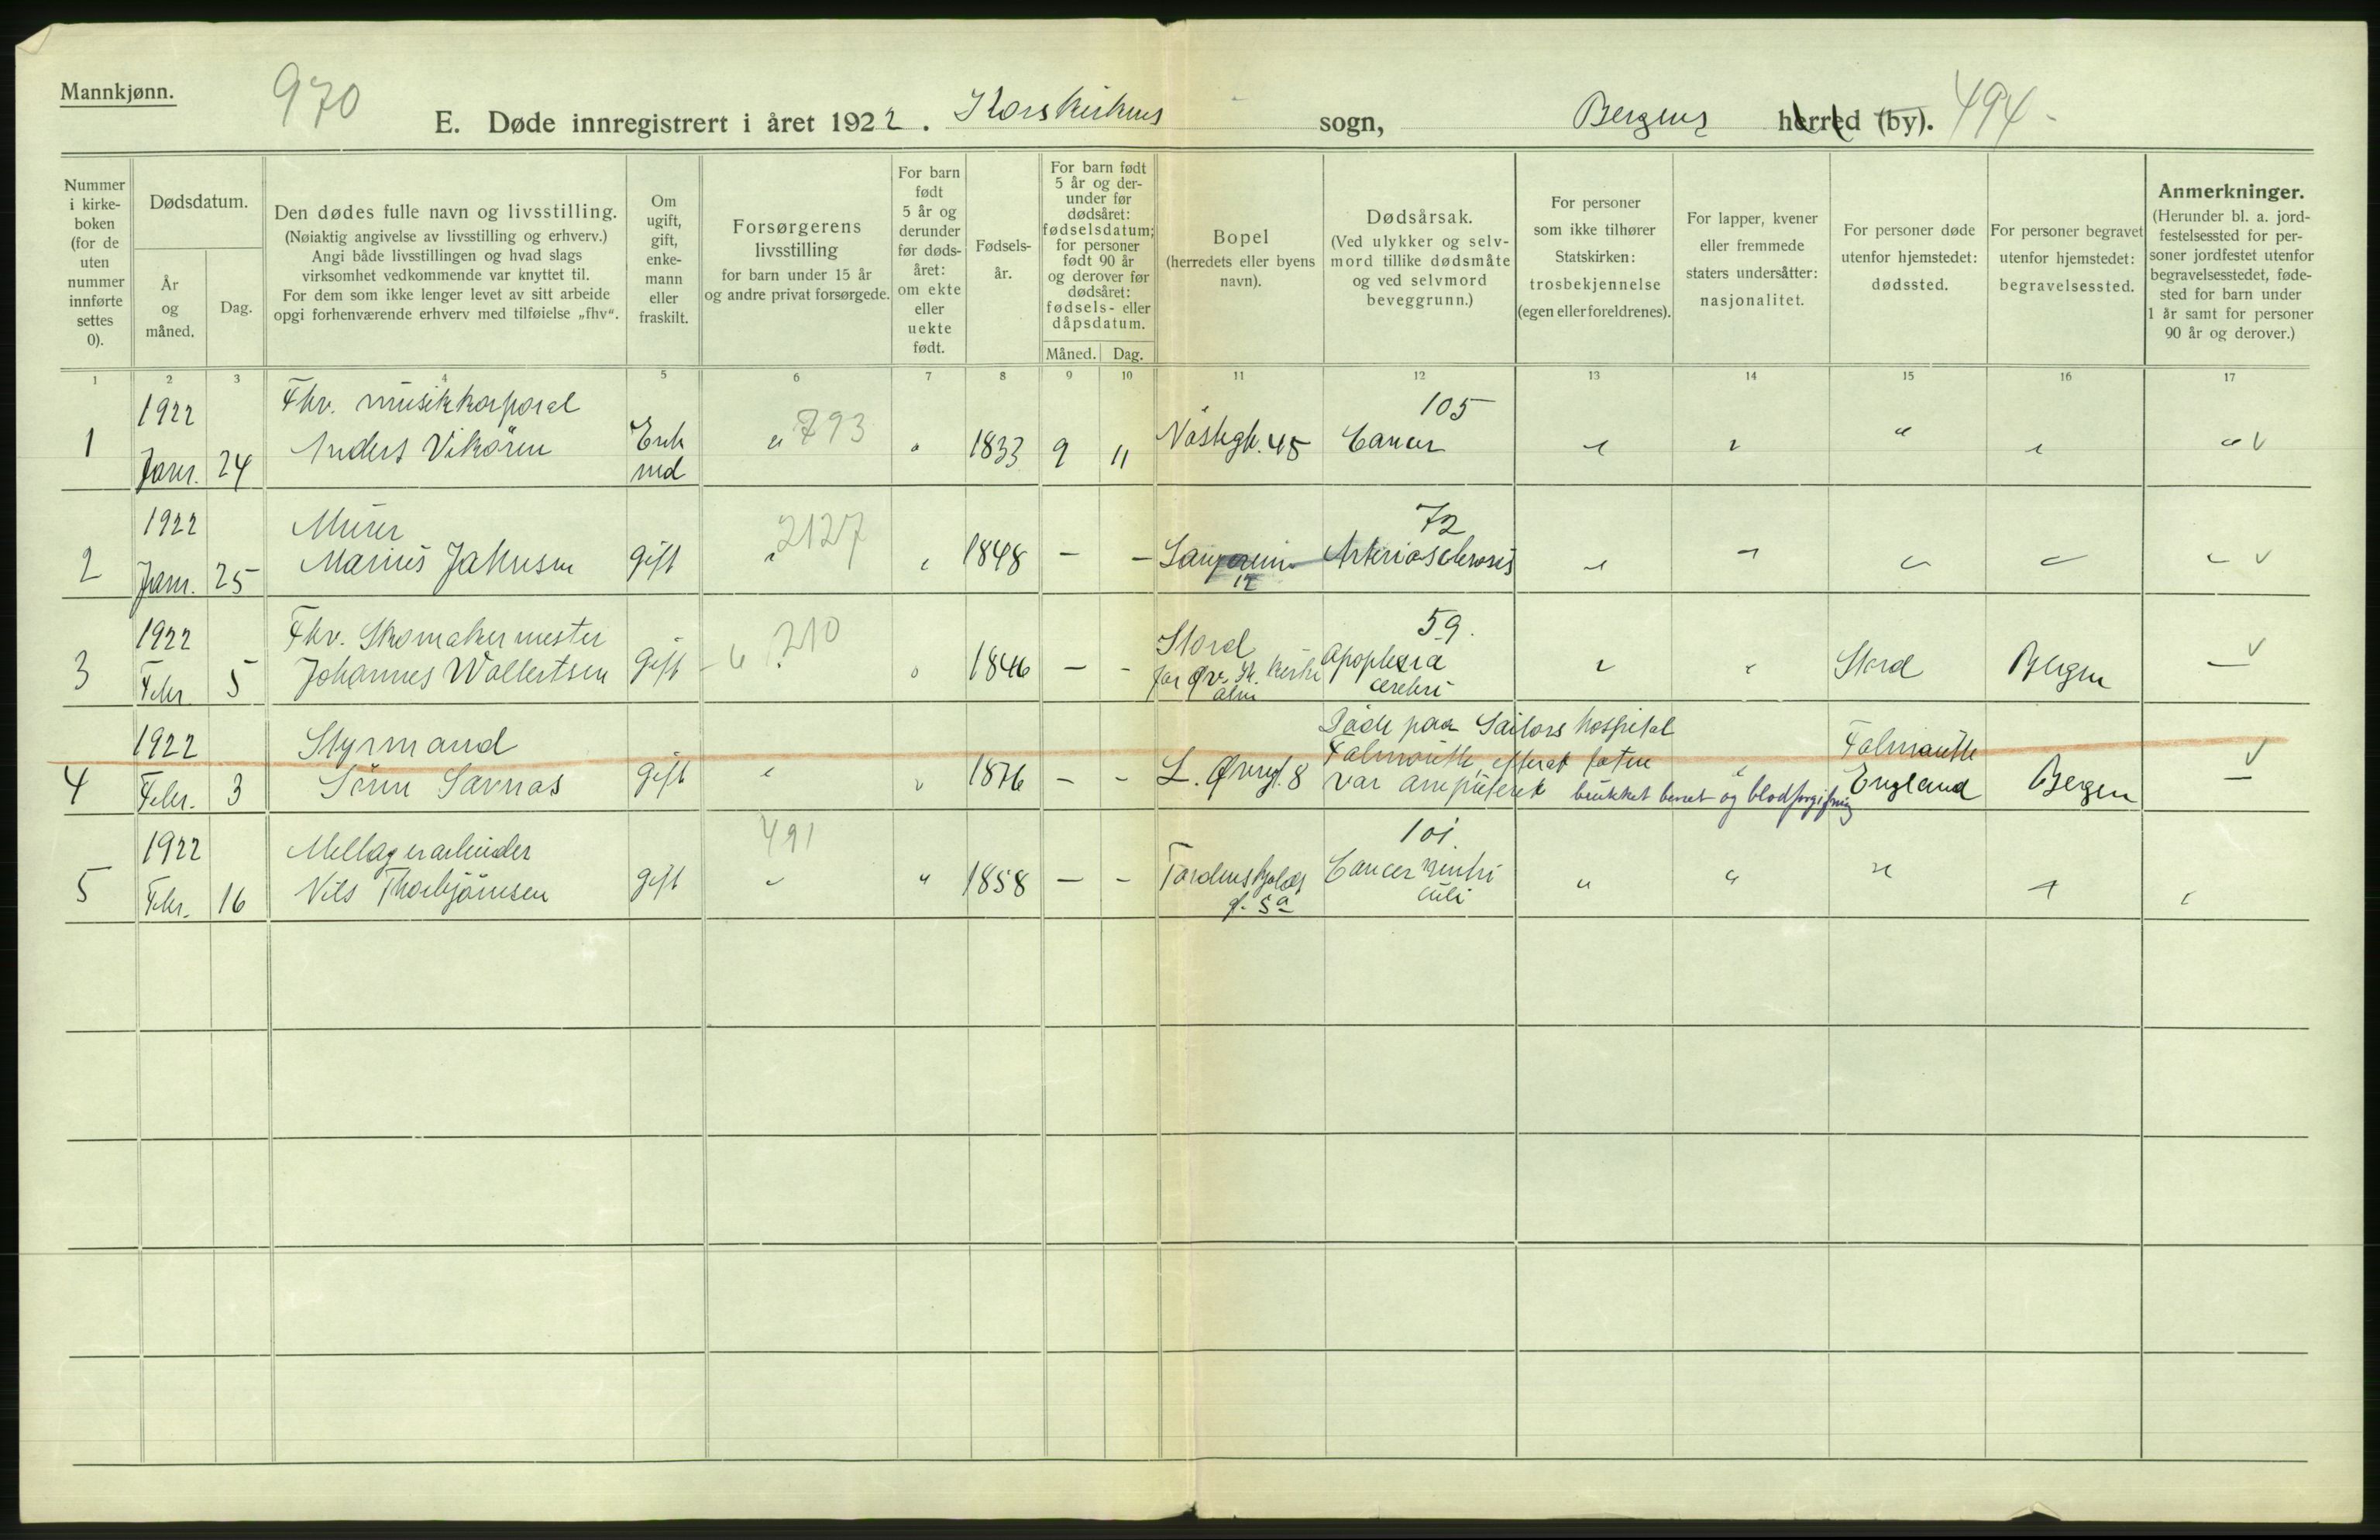 Mannkjønn.
970
E. Døde innregistrert i året 1922. Korskirkens sogn, Bergens herred (by). 494-
Nummer i kirke-boken (for de uten nummer innførte settes 0).
Dødsdatum.
År og måned.
Dag.
Den dødes fulle navn og livsstilling.
(Nøiaktig angivelse av livsstilling og erhverv.)
Angi både livsstillingen og hvad slags
virksomhet vedkommende var knyttet til.
For dem som ikke lenger levet av sitt arbeide
opgi forhenværende erhverv med tilføielse „fhv“.
Om ugift, gift, enke-mann eller fraskilt.
Forsørgerens
livsstilling
for barn under 15 år
og andre privat forsørgede.
For barn født 5 år og derunder før døds-året: om ekte eller uekte født.
Fødsels-år.
For barn født 5 år og der-under før dødsåret: fødselsdatum; for personer født 90 år og derover før dødsåret: fødsels- eller dåpsdatum.
Måned. Dag.
Bopel
(herredets eller byens navn).
Dødsårsak.
(Ved ulykker og selv-mord tillike dødsmåte og ved selvmord beveggrunn.)
For personer som ikke tilhører Statskirken: trosbekjennelse (egen eller foreldrenes).
For lapper, kvener eller fremmede staters undersåtter: nasjonalitet.
For personer døde utenfor hjemstedet: dødssted.
For personer begravet utenfor hjemstedet: begravelsessted.
Anmerkninger.
(Herunder bl. a. jord-festelsessted for per-soner jordfestet utenfor begravelsesstedet, føde-sted for barn under 1 år samt for personer 90 år og derover.)
1 2 3 4 5 6 7 8 9 10 11 12 13 14 15 16 17
1922 Fhv. musikkorporal 105
1 Janr. 24 Anders Vikören Enk md " 793 " 1833 9 11 Nöstegt. 45 Cancer " " " " " v
1922 Murer 2127 72
2 Janr. 25 Marius Jakobsen gift " " 1848 - - 12 Arteriosclerosis " " " " " v
1922 Fhv. Skomakermester 210 Stord 59.
3 Febr. 5 Johannes Wollertsen gift " " 1846 - - Apoplexia cerebri " " Stord Bergen - v
1922 Styrmand Døde paa Sailors hospital
4 Febr. 3 Sörm Savnas gift " " 1876 - - L. Øvregt. 8 Falmouth, efterat foten var amputeret brukket benet og blodforgiftning " Falmouth England Bergen - v
1922 491 101
5 Febr. 16 Nils Thorbjörnsen gift " " 1858 - - Tordenskjolds g. 5a Cancer ventriculi " " " " "